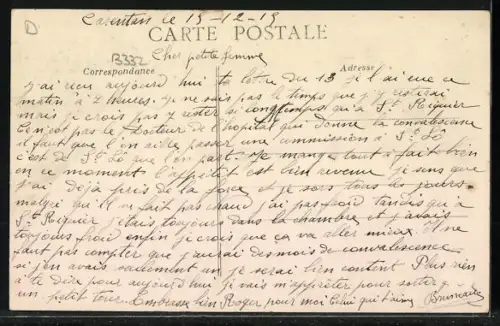 Carentan le 15-12-15
CARTE POSTALE
B332
Cher petite femme
Correspondance
Adresse
j'ai reçu aujourd hui ta lettre du 13 je l'ai eue ce
matin à 2 heures. Je ne sais pas le temps que j'y resterai
mais je crois pas y rester si longtemps qu'a St Riquier
Ce n'est pas le Docteur de l'hopital qui donne la convalescence
il faut que l'on aille passer une commission à St Lô
c'est de St Lô que l'on part. Je mange tout à fait bien
en ce moment l'appétit est bien revenue je sens que
j'ai déjà pris de la force et je sors tous les jours
malgré qu'il ne fait pas chaud j'ai pas froid tandis qu'a
St Riquier j'étais toujours dans la chambre et j'avais
toujours froid enfin je crois que ça va aller mieux. Il ne
faut pas compter que j'aurai des mois de convalescence
si j'en avais seulement un je serai bien content Plus rien
à te dire pour aujourd'hui je vais m'appréter pour sortir
un petit tour. Embrasse bien Roger pour moi Celui qui t'aime